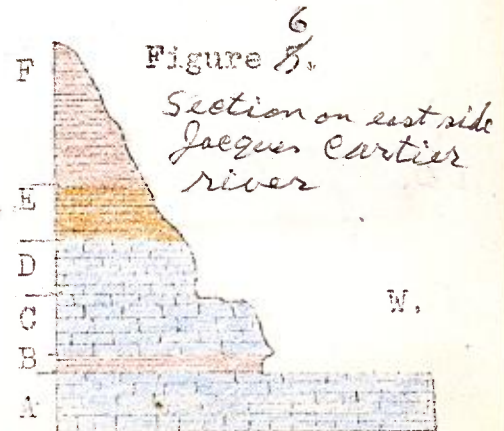 6
Figure 5.
Section on east side
Jacques Cartier
river
F
E
D
C
B
A
W.